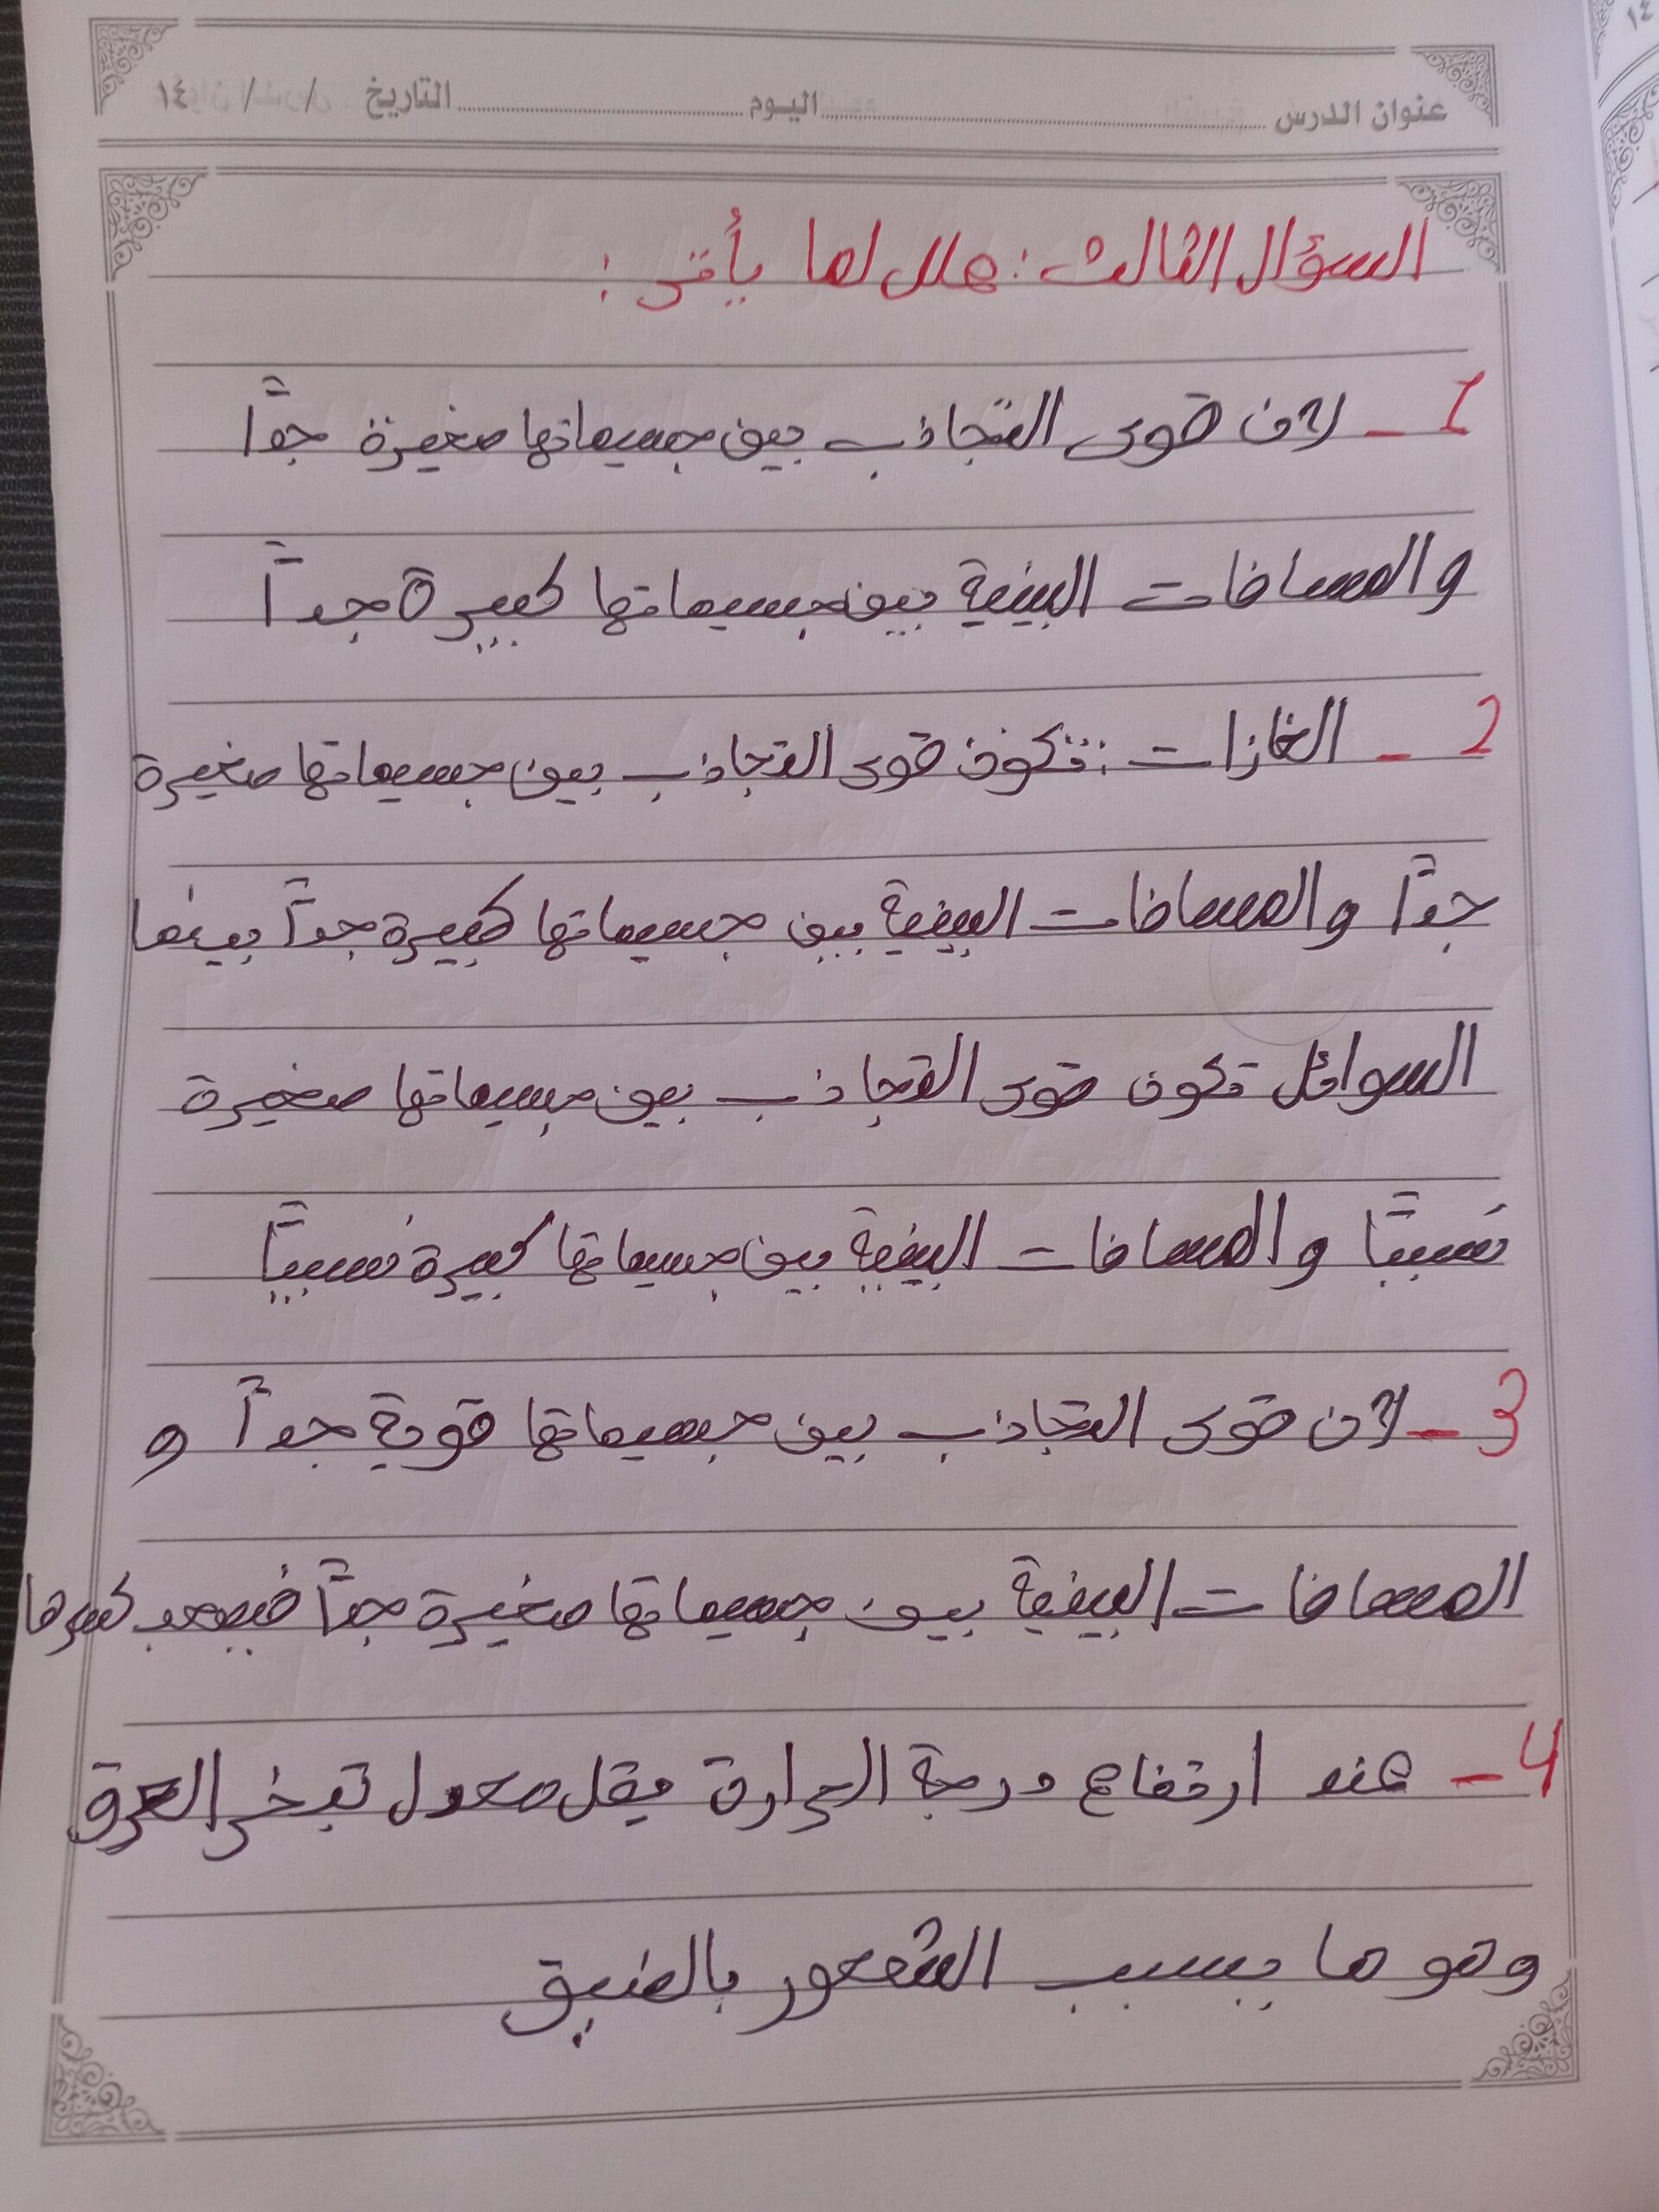 عنوان الدرس ........ اليوم ........ التاريخ / / ١٤
السؤال الثالث: علل لما يأتي:
1- لان قوى التجاذب بين جسيماتها صغيرة جدًا
والمسافات البينية بين جسيماتها كبيرة جداً
2- الغازات: تكون قوى التجاذب بين جسيماتها صغيرة
جدًا والمسافات البينية بين جسيماتها كبيرة جداً بينما
السوائل تكون قوى التجاذب بين جسيماتها صغيرة
نسبيًا والمسافات البينية بين جسيماتها كبيرة نسبيًا
3- لان قوى التجاذب بين جسيماتها قوية جداً و
المسافات البينية بين جسيماتها صغيرة جدًا فيصعب كسرها
4- عند ارتفاع درجة الحرارة يقل معدل تبخر العرق
وهو ما يسبب الشعور بالضيق